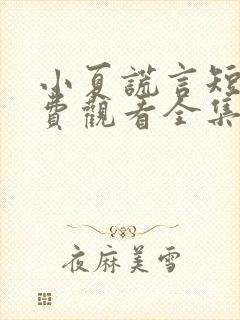 小夏謊言短
費觀看全集
夜麻美雪